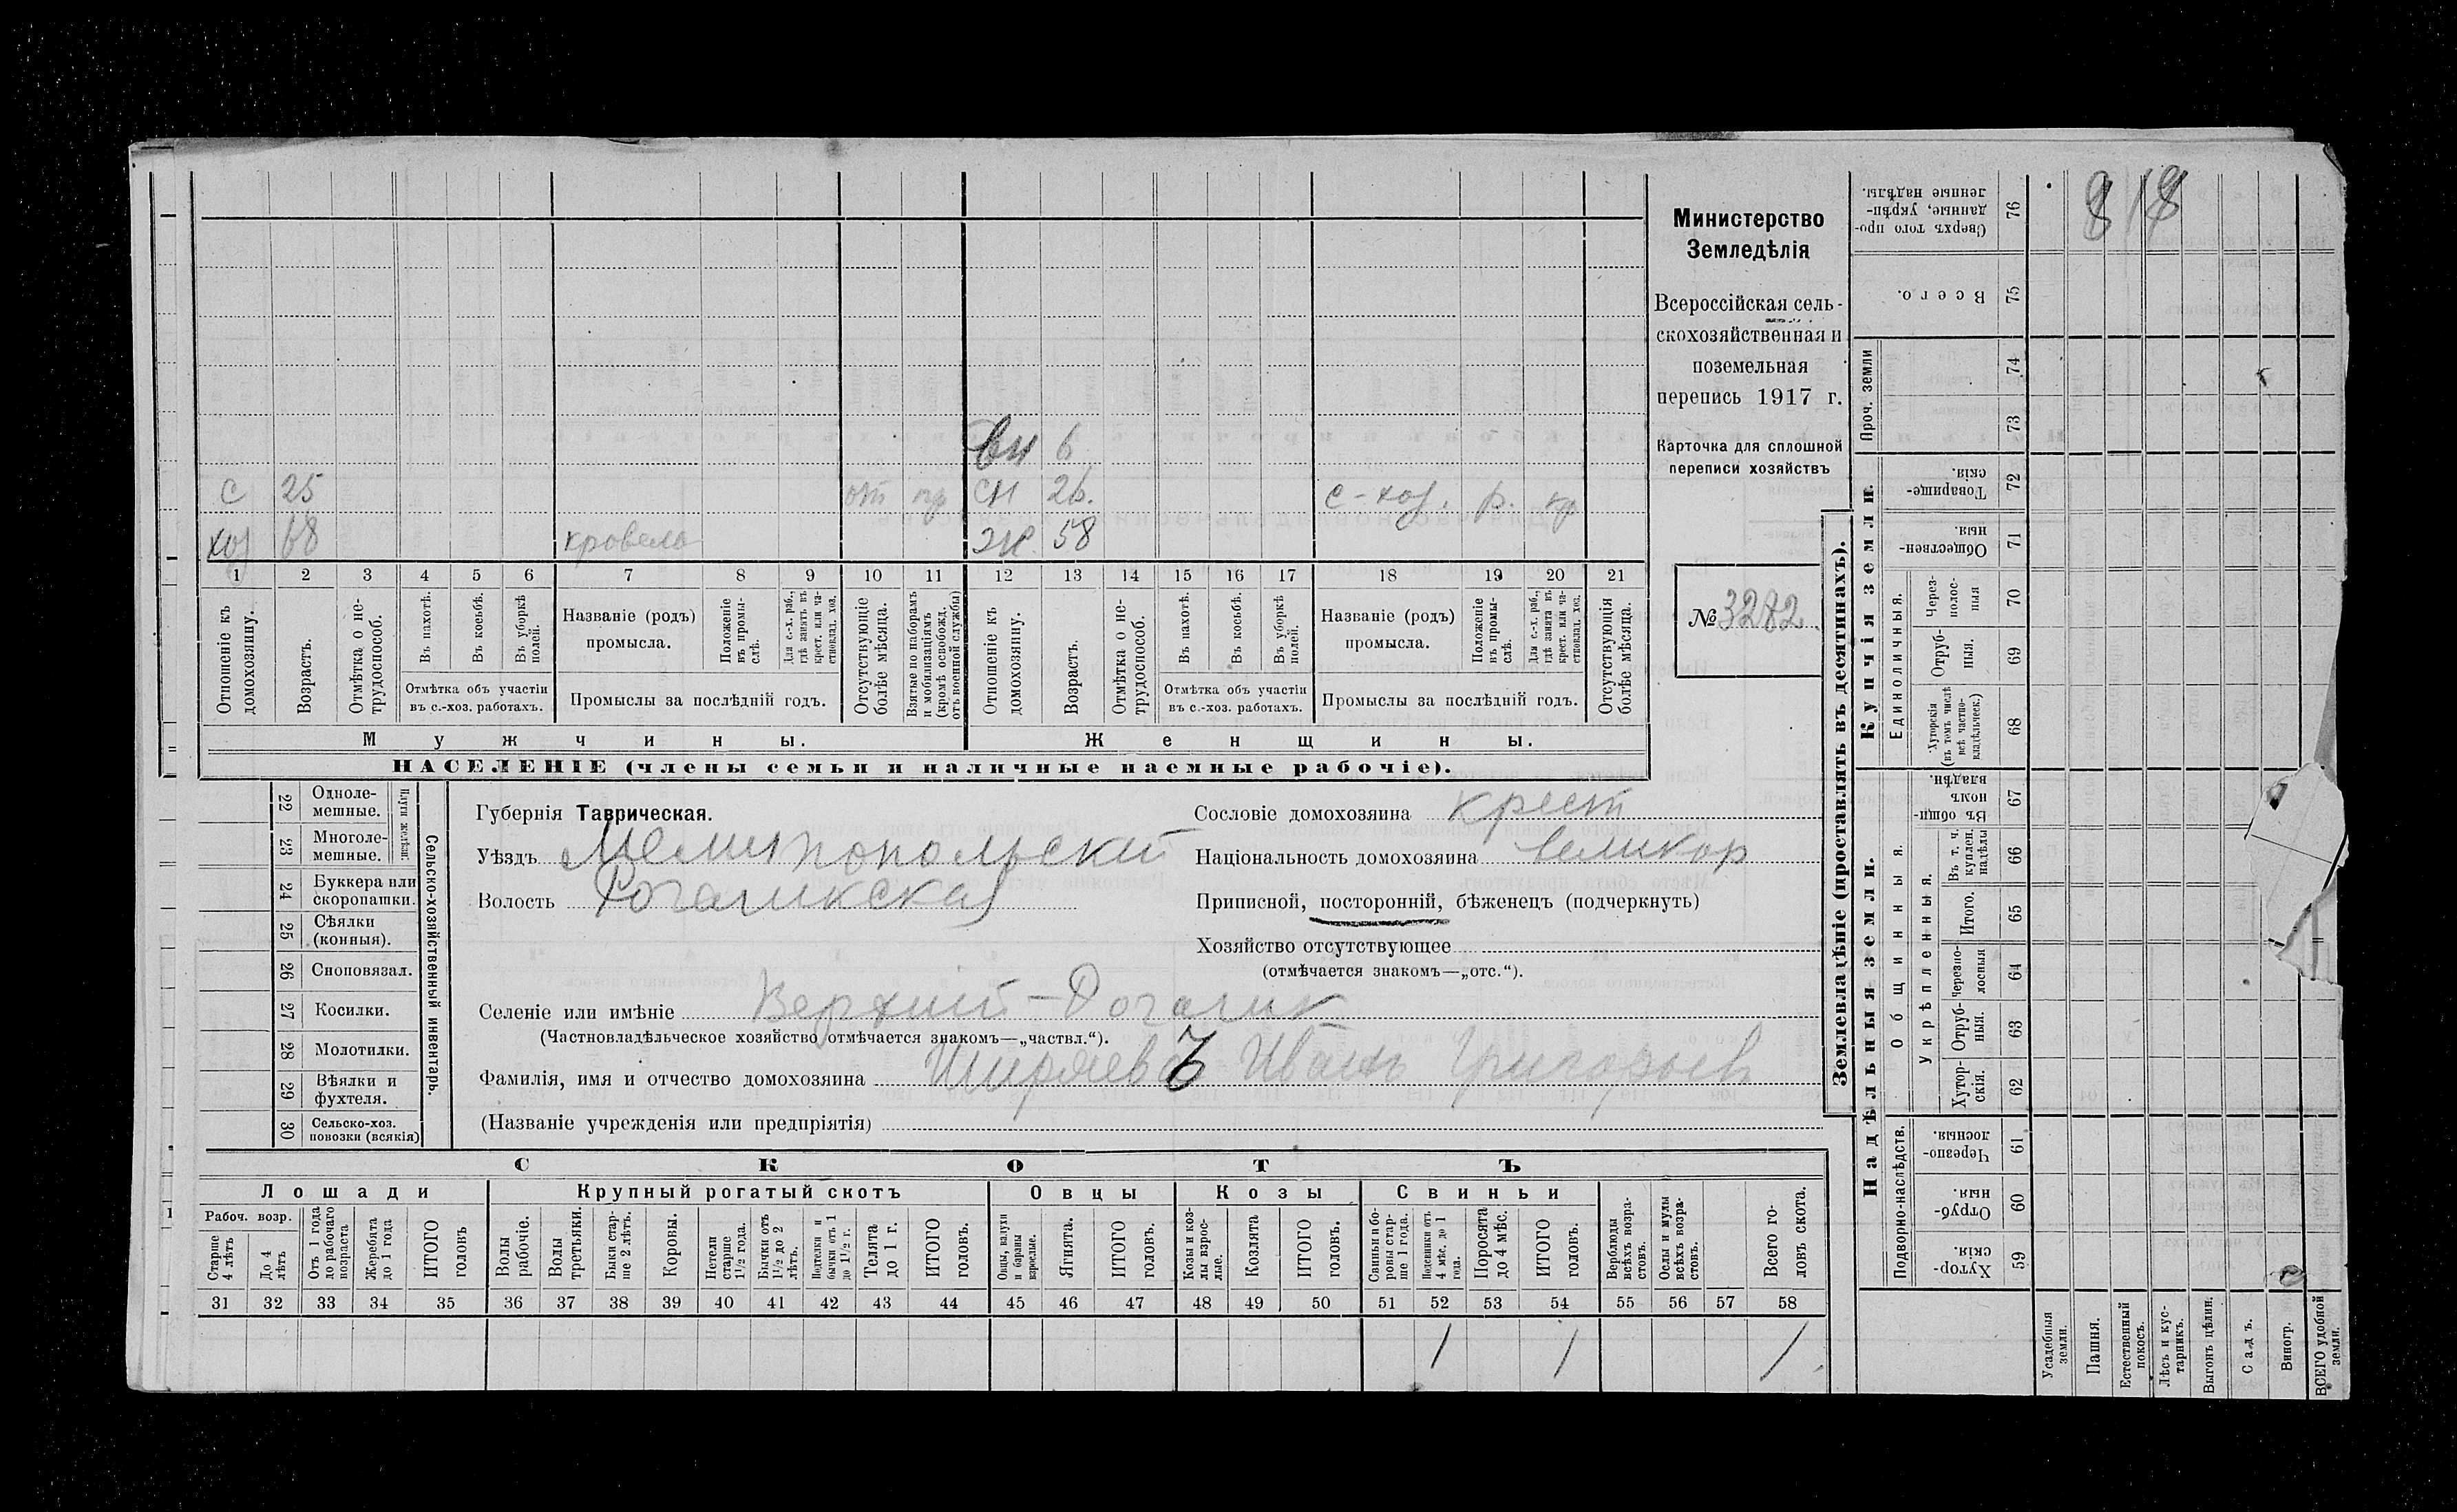 Министерство
Земледѣлія
Всероссійская сель-
скохозяйственная и
поземельная
перепись 1917 г.
Карточка для сплошной
переписи хозяйствъ
№ 3282
вн 6
с 25 от пр сн 26. с-хоз. р. кр
хоз 68 кровель ж 58
1 2 3 4 5 6 7 8 9 10 11 12 13 14 15 16 17 18 19 20 21
Отношеніе къ домохозяину.
Возрастъ.
Отмѣтка о не-трудоспособ.
Въ пахотѣ.
Въ косьбѣ.
Въ уборкѣ полей.
Отмѣтка объ участіи въ с.-хоз. работахъ.
Названіе (родъ) промысла.
Положеніе въ промы-слѣ.
Для с.-х. раб., гдѣ занятъ въ крест. или ча-стновлад. хоз.
Промыслы за послѣдній годъ.
Отсутствующіе болѣе мѣсяца.
Взятые по наборамъ и мобилизаціямъ (кромѣ освобожд. отъ военной службы)
Отношеніе къ домохозяину.
Возрастъ.
Отмѣтка о не-трудоспособ.
Въ пахотѣ.
Въ косьбѣ.
Въ уборкѣ полей.
Отмѣтка объ участіи въ с.-хоз. работахъ.
Названіе (родъ) промысла.
Положеніе въ промы-слѣ.
Для с.-х. раб., гдѣ занята въ крест. или ча-стновлад. хоз.
Промыслы за послѣдній годъ.
Отсутствующія болѣе мѣсяца.
Мужчины. Женщины.
НАСЕЛЕНІЕ (члены семьи и наличные наемные рабочіе).
22 Одноле-мешные.
23 Многоле-мешные.
Плуги желѣзн.
24 Буккера или скоропашки.
25 Сѣялки (конныя).
26 Сноповязал.
27 Косилки.
28 Молотилки.
29 Вѣялки и фухтеля.
30 Сельско-хоз. повозки (всякія)
Сельско-хозяйственный инвентарь.
Губернія Таврическая.
Уѣздъ Мелитопольскій
Волость Рогаликская
Сословіе домохозяина крест
Національность домохозяина великор
Приписной, посторонній, бѣженецъ (подчеркнуть)
Хозяйство отсутствующее
(отмѣчается знакомъ—„отс.“).
Селеніе или имѣніе Верхній-Рогалик
(Частновладѣльческое хозяйство отмѣчается знакомъ—„частвл.“).
Фамилія, имя и отчество домохозяина Ширяевъ Иванъ Григорьев
(Названіе учрежденія или предпріятія)
СКОТЪ
Лошади Крупный рогатый скотъ Овцы Козы Свиньи
Рабоч. возр.
Старше 4 лѣтъ
До 4 лѣтъ
Отъ 1 года до рабочаго возраста
Жеребята до 1 года
ИТОГО головъ
Волы рабочіе.
Волы третьяки.
Быки стар-ше 2 лѣтъ.
Коровы.
Нетели старше 1 1/2 года.
Бычки отъ 1 1/2 до 2 лѣтъ.
Подтелки и бычки отъ 1 до 1 1/2 г.
Телята до 1 г.
ИТОГО головъ.
Овцы, валухи и бараны взрослые.
Ягнята.
ИТОГО головъ.
Козы и коз-лы взрос-лые.
Козлята
ИТОГО головъ.
Свиньи и бо-ровы стар-ше 1 года.
Подсвинки отъ 4 мѣс. до 1 года.
Поросята до 4 мѣс.
ИТОГО головъ.
Верблюды всѣхъ возра-стовъ.
Ослы и мулы всѣхъ возра-стовъ.
Всего го-ловъ скота.
31 32 33 34 35 36 37 38 39 40 41 42 43 44 45 46 47 48 49 50 51 52 53 54 55 56 57 58
1 1 1
Землевладѣніе (проставлять въ десятинахъ).
Купчія земли.
Надѣльныя земли.
Сверхъ того про-данные, укрѣп-ленные надѣлы. 76
8 18
Всего. 75
Проч. земли
74
73
Товарище-скія. 72
Обществен-ныя. 71
Единоличныя.
Через-полос-ныя 70
Отруб-ныя. 69
Хуторскія (въ томъ числѣ всѣ частно-владѣльческ.) 68
Общинныя.
Въ общин-номъ владѣн. 67
Укрѣпленныя.
Въ т. ч. куплен. надѣлы 66
Итого. 65
Черезпо-лосныя 64
Отруб-ныя. 63
Хутор-скія. 62
Подворно-наслѣдств.
Черезпо-лосныя. 61
Отруб-ныя. 60
Хутор-скія. 59
Усадебныя земли.
Пашня.
Естественный покосъ.
Лѣсъ и кус-тарникъ.
Выгонъ цѣлин.
Садъ.
Виногр.
ВСЕГО удобной земли.